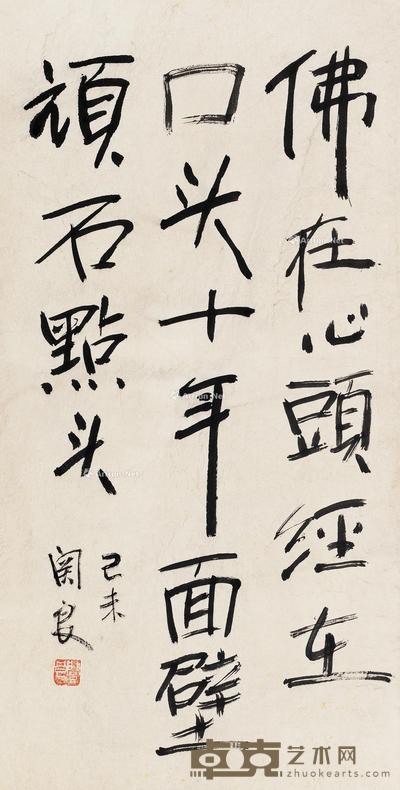 佛在心頭經在
口头十年面壁
頑石點头
己未
関良
卓克艺术网
zhuokearts.com